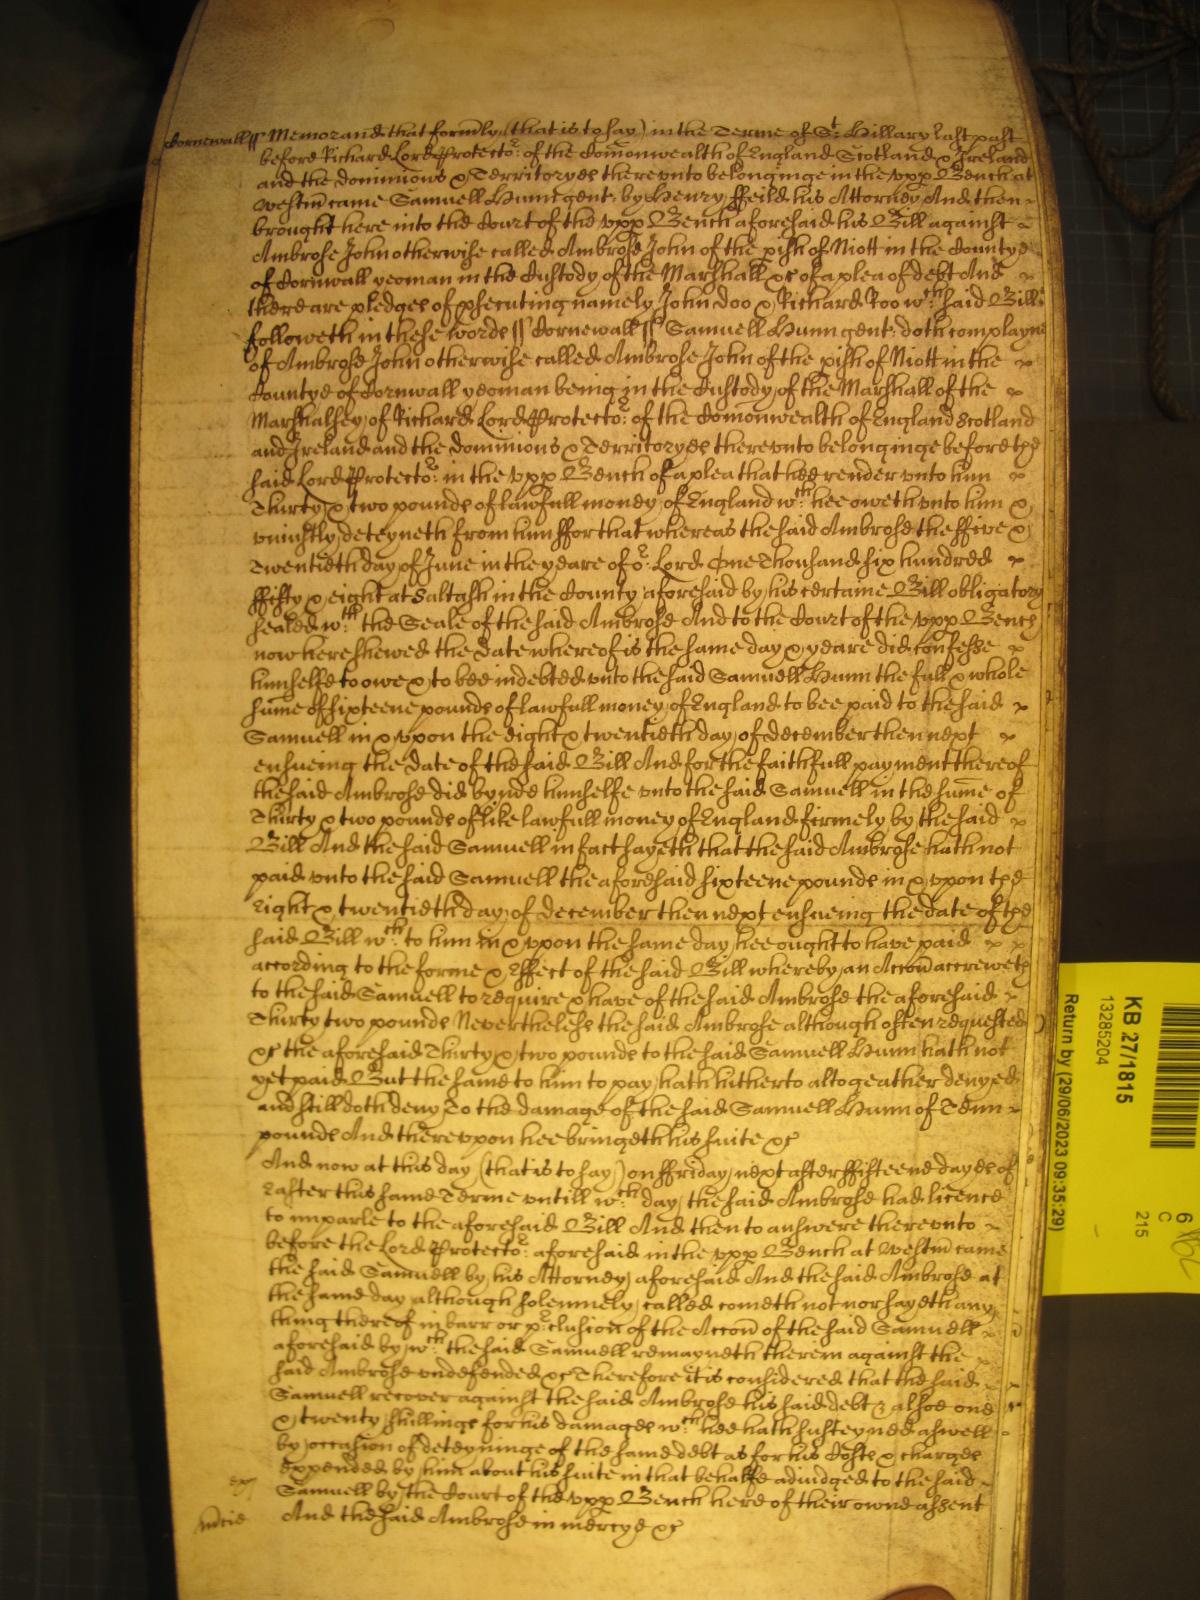 Cornewall ss Memorand that formly (that is to say) in the Terme of St. Hillary last past
before Richard Lord Protector of the Comonwealth of England Scotland & Ireland
and the dominions & Territoryes therevnto belonginge in the vpp Bench at
Westm came Samuell Hunn gent. by Henry ffeild his Attorney And then
brought here into the Court of the vpp Bench aforesaid his Bill against
Ambrose John otherwise called Ambrose John of the pish of Niott in the Countye
of Cornwall yeoman in the Custody of the Marshall &c of a plea of debt And
there are pledges of psecuting namely John Doo & Richard Roo wch. said Bill
followeth in these words ss Cornewall ss Samuell Hunn gent. doth complayne
of Ambrose John otherwise called Ambrose John of the pish of Niott in the
Countye of Cornwall yeoman being in the Custody of the Marshall of the
Marshalsey of Richard Lord Protector of the Comonwealth of England Scotland
and Ireland and the dominions & Territoryes therevnto belonginge before the
said Lord Protector in the vpp Bench of a plea that hee render vnto him
Thirty & two pounds of lawfull money of England wch. hee oweth vnto him &
vniustly deteyneth from him ffor that whereas the said Ambrose the ffive &
Twentieth day of June in the yeare of or. Lord One Thousand six hundred
ffifty & eight at Saltash in the County aforesaid by his certaine Bill obligatory
sealed wth. the Seale of the said Ambrose And to the Court of the vpp Bench
now here shewed the date whereof is the same day & yeare did confesse
himselfe to owe & to bee indebted vnto the said Samuell Hunn the full & whole
sume of sixteene pounds of lawfull money of England to bee paid to the said
Samuell in & vpon the eight & twentieth day of december then next
ensueing the date of the said Bill And for the faithfull payment thereof
the said Ambrose did bynde himselfe vnto the said Samuell in the sume of
Thirty & two pounds of like lawfull money of England firmely by the said
Bill And the said Samuell in fact sayeth that the said Ambrose hath not
paid vnto the said Samuell the aforesaid sixteene pounds in & vpon the
eight & twentieth day of december then next ensueing the date of the
said Bill wch. to him in & vpon the same day hee ought to have paid
according to the forme & effect of the said Bill whereby an Accon accreweth
to the said Samuell to require & have of the said Ambrose the aforesaid
Thirty two pounds Neverthelesse the said Ambrose although often requested
&c the aforesaid Thirty & two pounds to the said Samuell Hunn hath not
yet paid But the same to him to pay hath hitherto altogeather denyed
and still doth deny To the damage of the said Samuell Hunn of Tenn
pounds And therevpon hee bringeth his suite &c
And now at this day (that is to say) on ffriday next after ffifteene dayes of
Easter this same Terme vntill wch. day the said Ambrose had licence
to imparle to the aforesaid Bill And then to answere therevnto
before the Lord Protector aforesaid in the vpp Bench at Westm came
the said Samuell by his Attorney aforesaid And the said Ambrose at
the same day although solemnely called cometh not nor sayeth any
thing thereof in barr or pclusion of the Accon of the said Samuell
aforesaid by wch. the said Samuell remayneth therein against the
said Ambrose vndefended &c Therefore it is considered that the said
Samuell recover against the said Ambrose his said debt & alsoe one
& twenty shillings for his damages wch. hee hath susteyned aswell
by occasion of deteyninge of the same debt as for his Costs & charges
expended by him about his suite in that behalfe adiudged to the said
Samuell by the Court of the vpp Bench here of their owne assent
mcie And the said Ambrose in mercye &c
KB 27/1815
13285204
Return by (29/06/2023 09:35:29)
6
C
215